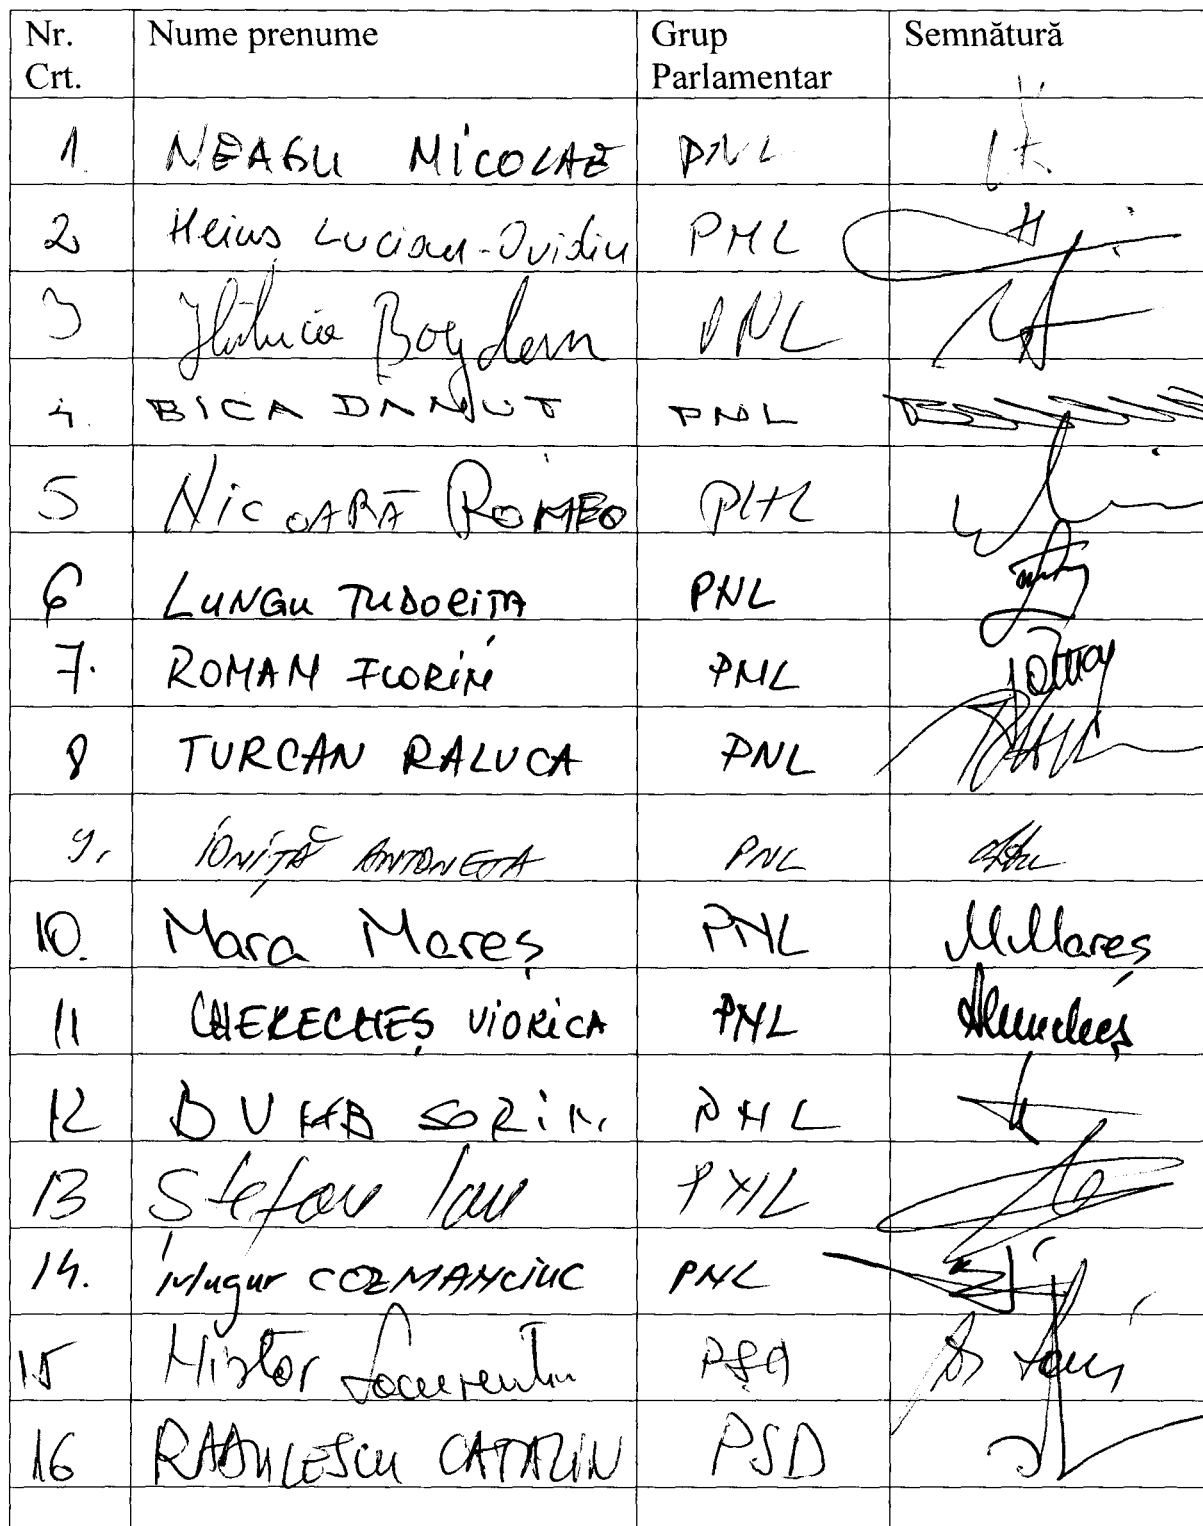 Nr. Crt. Nume prenume Grup Parlamentar Semnătură
1 NEAGU NICOLAE PNL
2 Heiuș Lucian-Ovidiu PNL
3 Bogdan PNL
4. BICA DANUT PNL
5 NICOARĂ ROMEO PNL
6 LUNGU TUDORIȚA PNL
7. ROMAN FLORIN PNL
8 TURCAN RALUCA PNL
9. IONIȚĂ ANTONETA PNL
10. Mara Mareș PNL M.Mareș
11 CHERECHEȘ VIORICA PNL
12 BUMB SORIN PNL
13 Ștefan Ion PNL
14. Mugur COZMANCIUC PNL
15 Nistor Laurentiu PSD
16 RADULESCU CATALIN PSD